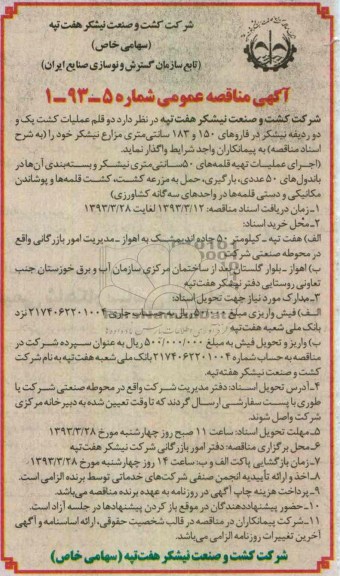 شرکت کشت و صنعت نیشکر هفت تپه
(سهامی خاص)
(تابع سازمان گسترش و نوسازی صنایع ایران)
آگهی مناقصه عمومی شماره ۵-۹۳-۱
شرکت کشت و صنعت نیشکر هفت تپه در نظر دارد دو قلم عملیات کشت یک و
دو ردیفه نیشکر در فاروهای ۱۵۰ و ۱۸۳ سانتی‌متری مزارع نیشکر خود را (به شرح
اسناد مناقصه) به پیمانکاران واجد شرایط واگذار نماید.
(اجرای عملیات تهیه قلمه‌های ۵۰سانتی‌متری نیشکر و بسته‌بندی آن‌ها در
باندول‌های ۵۰عددی، بارگیری، حمل به مزرعه کشت، کشت قلمه‌ها و پوشاندن
مکانیکی و دستی قلمه‌ها در واحدهای سه‌گانه کشاورزی)
۱-زمان دریافت اسناد مناقصه: ۱۳۹۳/۳/۱۲ لغایت ۱۳۹۳/۳/۲۸
۲-محل خرید اسناد:
الف) هفت تپه - کیلومتر ۵۰ جاده اندیمشک به اهواز -مدیریت امور بازرگانی واقع
در محوطه صنعتی شرکت
ب) اهواز -بلوار گلستان بعد از ساختمان مرکزی سازمان آب و برق خوزستان جنب
تعاونی روستایی دفتر نیشکر هفت‌تپه
۳-مدارک مورد نیاز جهت تحویل اسناد:
الف) فیش واریزی مبلغ ریال به حساب جاری ۲۱۷۴۰۶۲۲۰۱۰۰۴ نزد
بانک ملی شعبه هفت تپه
ب) واریز و تحویل فیش به مبلغ ۵۰۰/۰۰۰/۰۰۰ ریال به عنوان سپرده شرکت در
مناقصه به حساب شماره ۲۱۷۴۰۶۲۲۰۱۰۰۴ بانک ملی شعبه هفت‌تپه به نام شرکت
کشت و صنعت نیشکر هفت‌تپه.
۴-آدرس تحویل اسناد: دفتر مدیریت شرکت واقع در محوطه صنعتی شرکت یا
طوری با پست سفارشی ارسال گردند که تا وقت تعیین شده به دبیرخانه مرکزی
شرکت واصل شوند.
۵-مهلت تحویل اسناد: ساعت ۱۱ صبح روز چهارشنبه مورخ ۱۳۹۳/۳/۲۸
۶-محل برگزاری مناقصه: دفتر امور بازرگانی شرکت نیشکر هفت‌تپه
۷-زمان بازگشایی پاکت الف و ب: ساعت ۱۴ روز چهارشنبه مورخ ۱۳۹۳/۳/۲۸
۸-اخذ و ارائه تأییدیه انجمن صنفی شرکت‌های خدماتی توسط برنده الزامی است.
۹-پرداخت هزینه چاپ آگهی در روزنامه به عهده برنده مناقصه می‌باشد.
۱۰-حضور پیشنهاددهندگان در موقع باز کردن پیشنهادها در جلسه آزاد است.
۱۱-شرکت پیمانکاران در مناقصه در قالب شخصیت حقوقی، ارائه اساسنامه و آگهی
آخرین تغییرات روزنامه الزامی می‌باشد.
شرکت کشت و صنعت نیشکر هفت‌تپه (سهامی خاص)